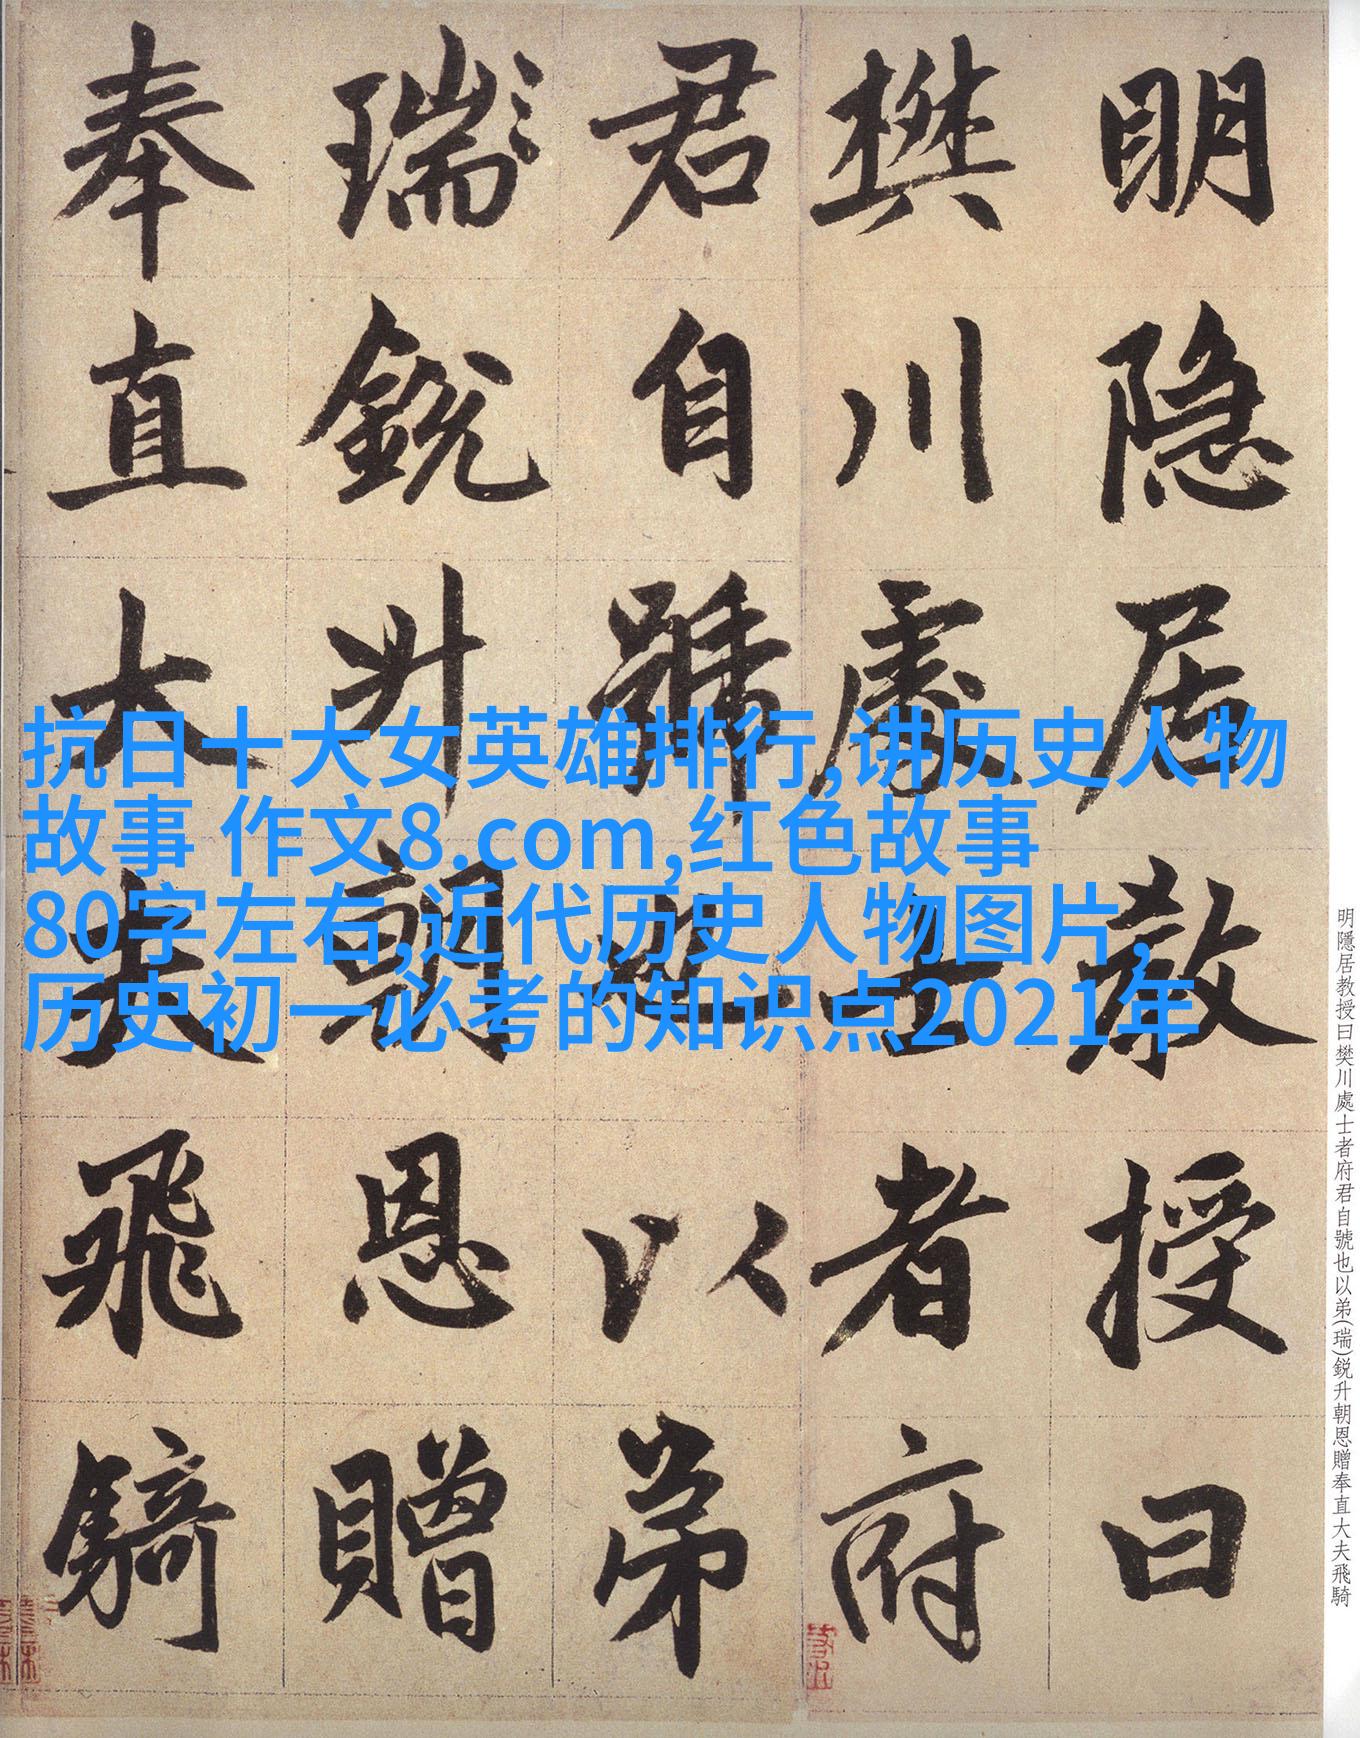 明隐居教授曰
樊川處士者府
君自號也以弟
瑞鋭升朝恩贈
奉直大夫飛騎
抗日十大女英雄排行,讲历史人物
故事 作文8.com,红色故事
80字左右,近代历史人物图片,
历史初一必考的知识点2021年
明隱居教授曰樊川處士者府君自號也以弟(瑞)鋭升朝恩贈奉直大夫飛騎